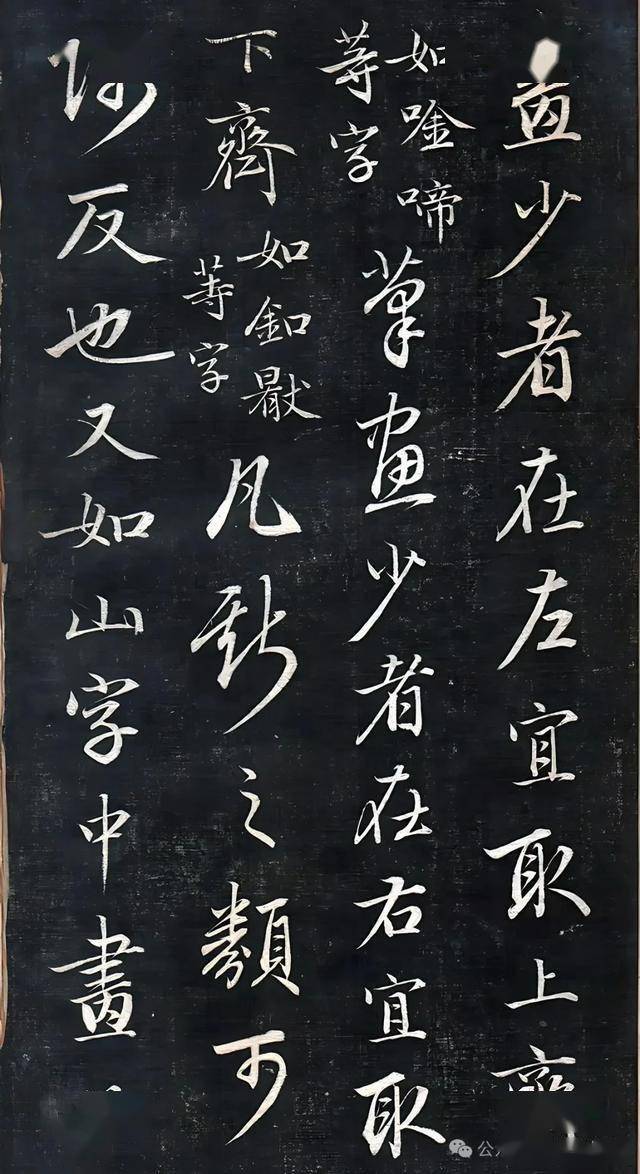 畫少者在左宜取上齊
如唫啼
等字
筆畫少者在右宜取
下齊
如釦
等字
凡斯之類可
反也又如山字中畫
公